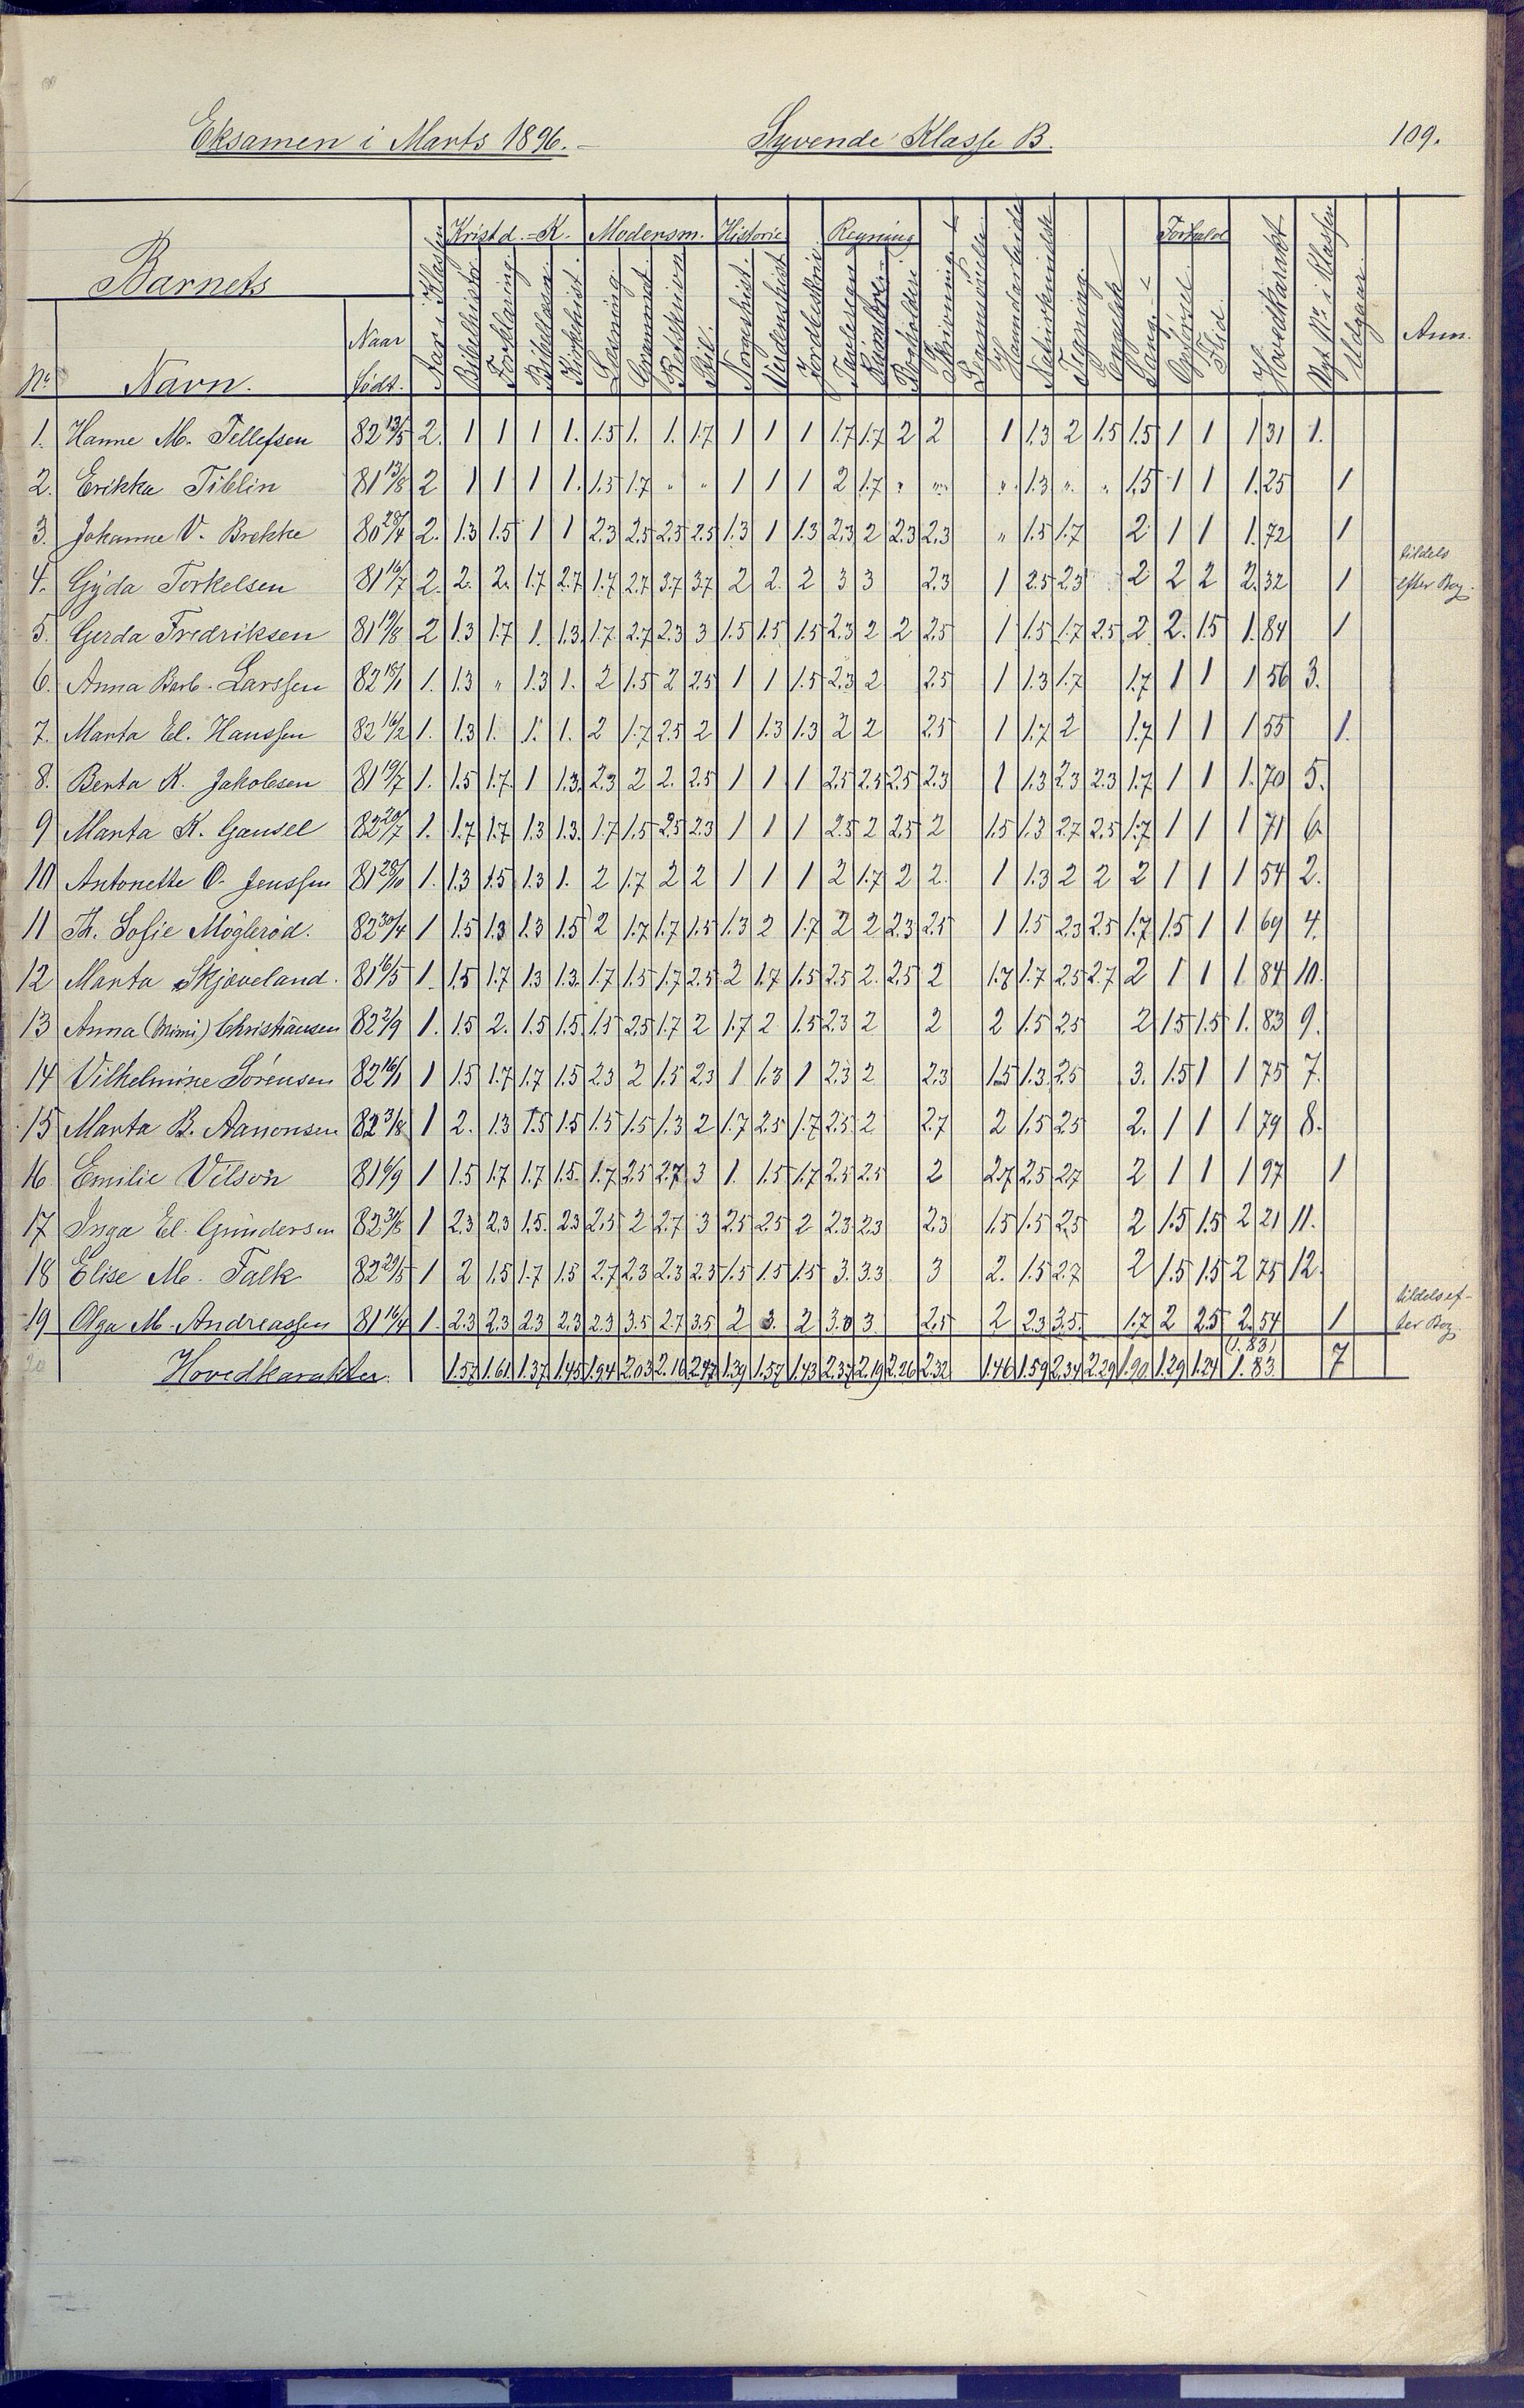 Eksamen i Marts 1896. – Syvende Klasse B. 109.
Barnets Aar i Klassen Kristd.=K. Modersm. Historie Regning Forhold
Nr. Navn. Naar født. Bibelhistor. Forklaring Bibellæsn. Kirkehist. Læsning Grammat. Retskrivn. Stil. Norgeshist. Verdenshist. Jordbeskriv. Skrivning Haandarbeide Naturkundsk. Tegning Engelsk Sang Opførsel Flid. Hovedkarakt. Nyt Nr. i Klassen Udgaar. Anm.
1. Hanne M. Tellefsen 82 12/5 2. 1 1 1 1. 1.5 1. 1. 1.7 1 1 1 1.7 1.7 2 2 1 1.3 2 1.5 1.5 1 1 1 31 1.
2. Erikka Tiblin 81 13/8 2 1 1 1 1. 1.5 1.7 " " 1 1 1 2 1.7 " " " 1.3 " " 1.5 1 1 1.25 1
3. Johanne V. Brekke 80 28/4 2. 1.3 1.5 1 1 2.3 2.5 2.5 2.5 1.3 1 1.3 2.3 2 2.3 2.3 " 1.5 1.7 2 1 1 1.72 1
4. Gyda Torkelsen 81 16/7 2. 2. 2. 1.7 2.7 1.7 2.7 3.7 3.7 2 2. 2 3 3 2.3 1 2.5 2.3 2 2 2 2.32 1 tildels efter Bog.
5. Gerda Fredriksen 81 19/8 2 1.3 1.7 1. 1.3 1.7 2.7 2.3 3 1.5 1.5 1.5 2.3 2 2 2.5 1 1.5 1.7 2.5 2 2. 1.5 1.84 1
6. Anna Barb. Larssen 82 18/1 1. 1.3 " 1.3 1. 2 1.5 2 2.5 1 1 1.5 2.3 2 2.5 1 1.3 1.7 1.7 1 1 1 56 3.
7. Marta El. Hanssen 82 16/2 1. 1.3 1. 1. 1. 2 1.7 2.5 2 1 1.3 1.3 2 2 2.5 1 1.7 2 1.7 1 1 1 55 1.
8. Berta K. Jakobsen 81 19/7 1. 1.5 1.7 1 1.3 2.3 2 2. 2.5 1 1 1 2.5 2.5 2.5 2.3 1 1.3 2.3 2.3 1.7 1 1 1.70 5.
9 Marta K. Gausel 82 20/7 1. 1.7 1.7 1.3 1.3. 1.7 1.5 2.5 2.3 1 1 1 2.5 2 2.5 2 1.5 1.3 2.7 2.5 1.7 1 1 1 71 6.
10 Antonette O. Jenssen 81 28/10 1. 1.3 1.5 1.3 1. 2 1.7 2 2 1 1 1 2 1.7 2 2. 1 1.3 2 2 2 1 1 1 54 2.
11 Th. Sofie Møglerød. 82 30/4 1 1.5 1.3 1.3 1.5 2 1.7 1.7 1.5 1.3 2 1.7 2 2 2.3 2.5 1 1.5 2.3 2.5 1.7 1.5 1 1 69 4.
12 Marta Skjæveland. 81 16/5 1. 1.5 1.7 1.3 1.3. 1.7 1.5 1.7 2.5 2 1.7 1.5 2.5 2. 2.5 2 1.7 1.7 2.5 2.7 2 1 1 1 84 10.
13 Anna (Mimi) Christiansen 82 2/9 1. 1.5 2. 1.5 1.5 1.5 2.5 1.7 2 1.7 2 1.5 2.3 2 2 2 1.5 2.5 2 1.5 1.5 1. 83 9.
14 Vilhelmine Sørensen 82 16/1 1 1.5 1.7 1.7 1.5 2.3 2 1.5 2.3 1 1.3 1 2.3 2 2.3 1.5 1.3 2.5 3. 1.5 1 1 75 7.
15 Marta B. Aanonsen 82 3/8 1 2. 1.3 1.5 1.5 1.5 1.5 1.3 2 1.7 2.5 1.7 2.5 2 2.7 2 1.5 2.5 2. 1 1 1 79 8.
16 Emilie Vilson 81 6/9 1 1.5 1.7 1.7 1.5. 1.7 2.5 2.7 3 1. 1.5 1.7 2.5 2.5 2 2.7 2.5 2.7 2 1 1 1 97 1
17 Inga El. Gundersen 82 31/8 1 2.3 2.3 1.5. 2.3 2.5 2 2.7 3 2.5 2.5 2 2.3 2.3 2.3 1.5 1.5 2.5 2 1.5 1.5 2 21 11.
18 Elise M. Falk 82 29/5 1 2 1.5 1.7 1.5 2.7 2.3 2.3 2.3 1.5 1.5 1.5 3. 3.3 3 2. 1.5 2.7 2 1.5 1.5 2 75 12.
19 Olga M. Andreassen 81 16/4 1. 2.3 2.3 2.3 2.3 2.3 3.5 2.7 3.5 2 3. 2 3.0 3. 2.5 2 2.3 3.5. 1.7 2 2.5 2.54 1 tildels ef-
ter Bog.
20 Hovedkarakter. 1.57 1.61 1.37 1.45 1.94 2.03 2.16 2.47 1.39 1.57 1.43 2.37 2.19 2.26 2.32 1.46 1.59 2.34 2.29 1.90 1.29 1.24 (1.83) 1.83. 7